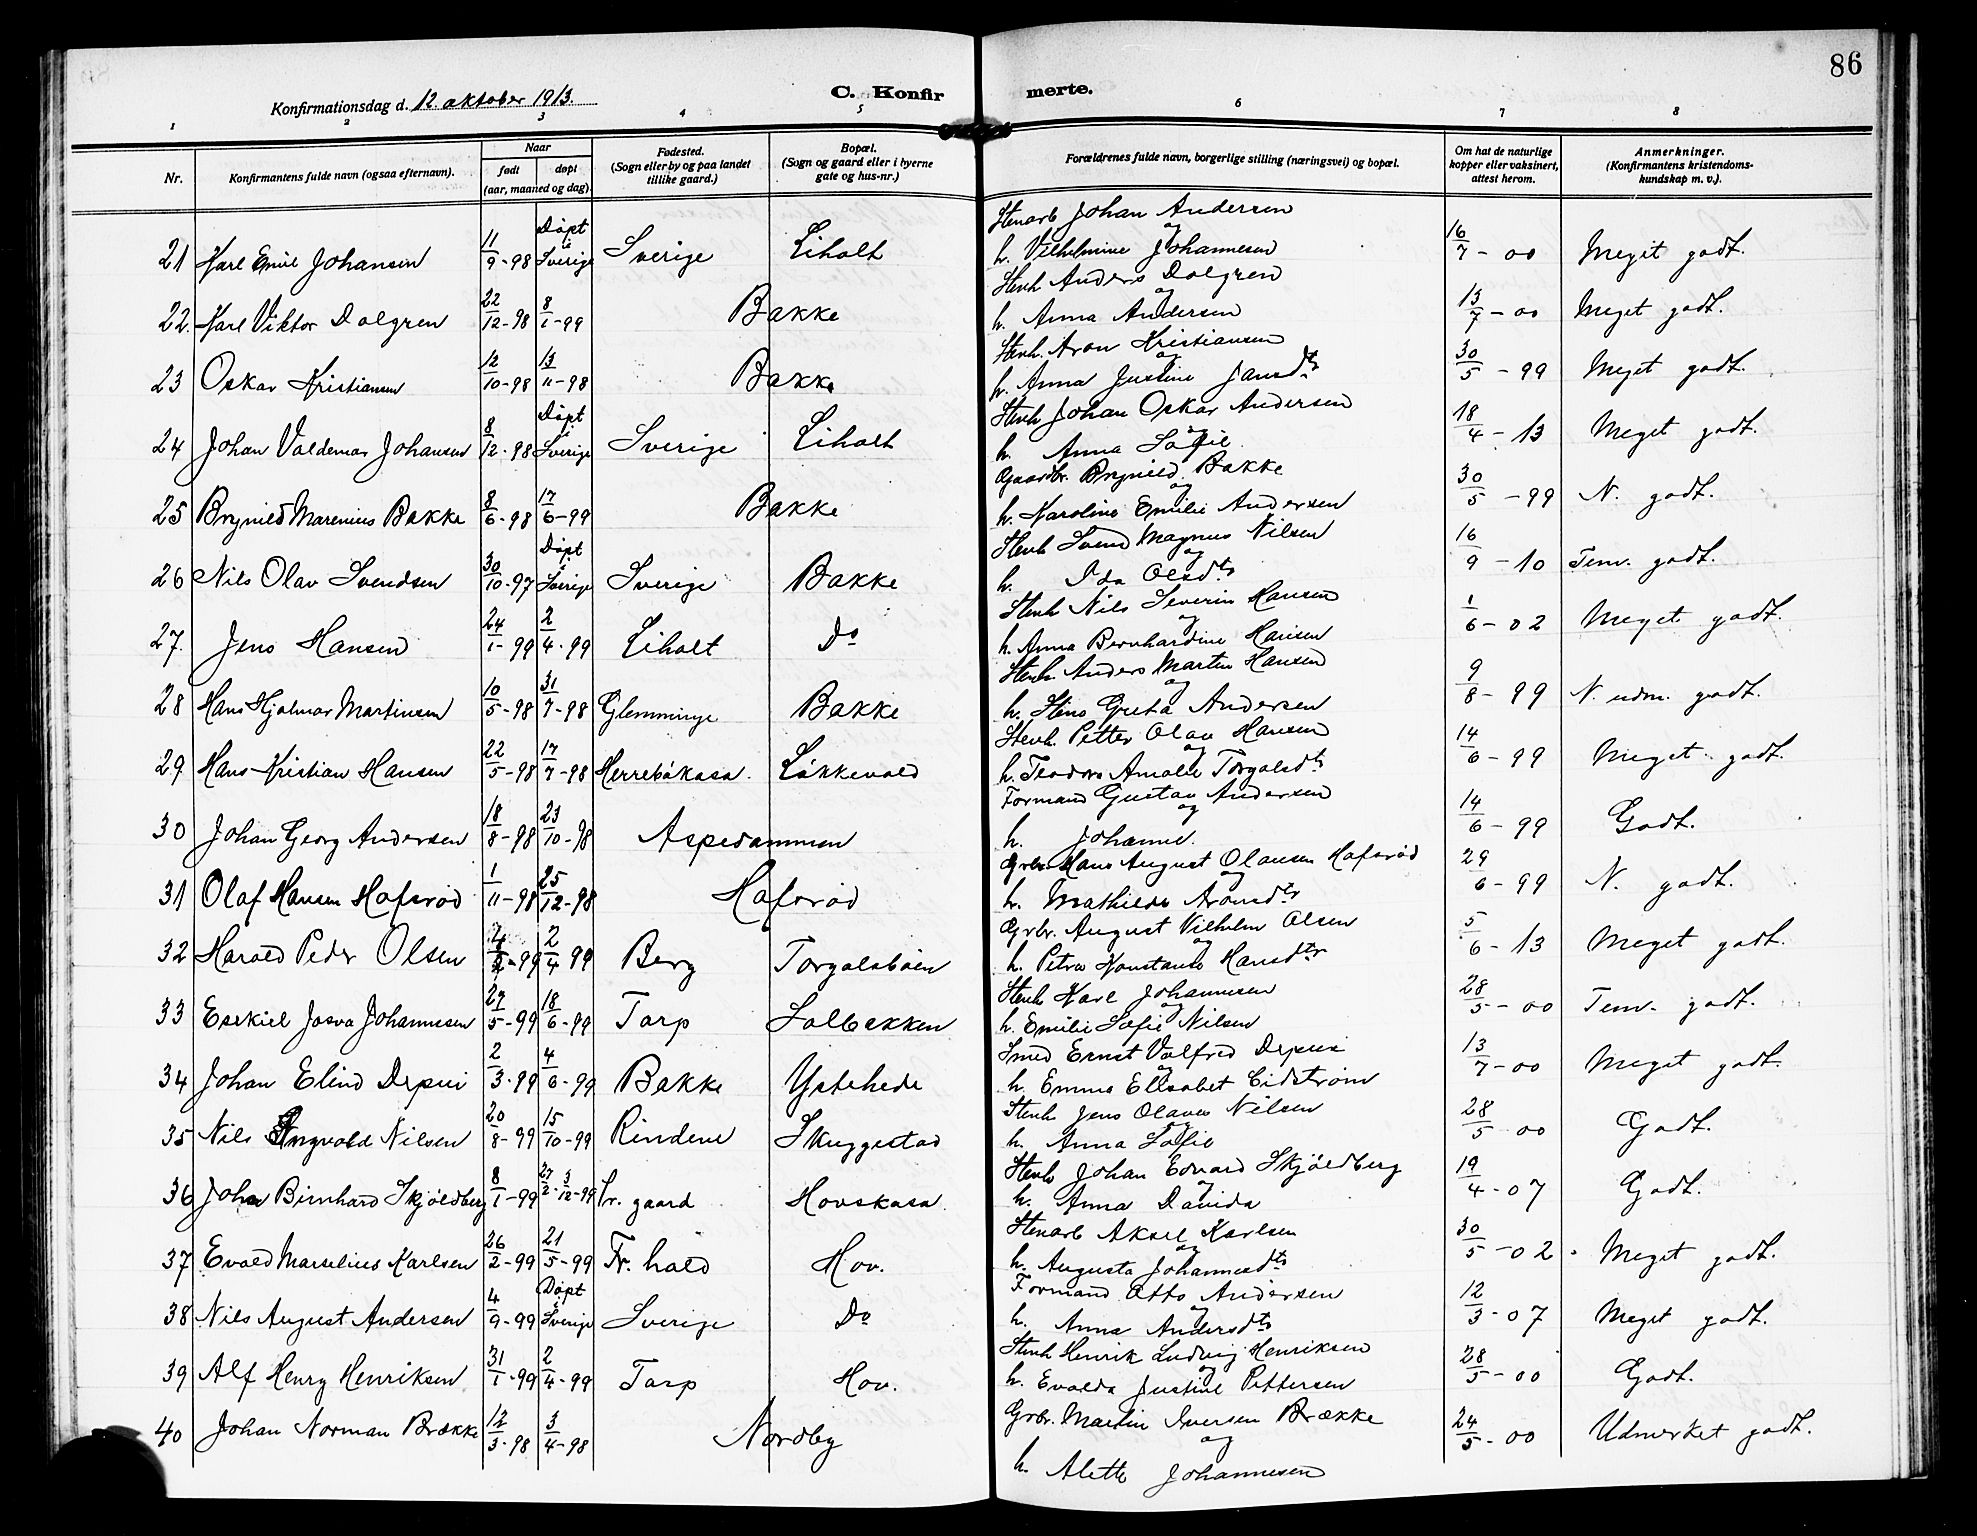 86
Konfirmationsdag d. 12. oktober 1913.
C. Konfirmerte.
1 2 3 4 5 6 7 8
Nr. Konfirmantens fulde navn (ogsaa efternavn). Naar født døpt (aar, maaned og dag). Fødested. (Sogn eller by og paa landet tillike gaard.) Bopæl. (Sogn og gaard eller i byerne gate og hus-nr.) Forældrenes fulde navn, borgerlige stilling (næringsvei) og bopæl. Om hat de naturlige kopper eller vaksinert, attest herom. Anmerkninger. (Konfirmantens kristendoms-kundskap m. v.).
21 Karl Emil Johansen 11/9-98 Døpt i Sverige Sverige Liholt Stenarb Johan Andersen og h. Vilhelmine Johannesen 16/7-00 Meget godt.
22. Karl Viktor Dalgren 22/12-98 8/1-99 Bakke Stenh Anders Dalgren og h. Anna Andersen 13/7-00 Meget godt.
23 Oskar Kristiansen 12/10-98 13/11-98 Bakke Stenh. Aron Kristiansen og h. Anna Justine Jansdtr 30/5-99 Meget godt.
24 Johan Valdemar Johansen 8/12-98 Døpt i Sverige Sverige Liholt Stenh Johan Oskar Andersen og h. Anna Sofie. 18/4-13 Meget godt.
25 Brynild Marenius Bakke 8/6-98 17/6-99 Bakke Gaardbr. Brynild Bakke og h. Karoline Emilie Andersen 30/5-99 N. godt.
26 Nils Olav Svendsen 30/10-97 Døpt i Sverige Sverige Bakke Stenh Svend Magnus Nilsen og h. Ida Olsdtr 16/9-10 Tem. godt.
27. Jens Hansen 24/1-99 2/4-99 Liholt Do Stenh Nils Severin Hansen og h. Anna Bernhardine Hansen 1/6-02 Meget godt.
28 Hans Hjalmar Martinsen 10/5-98 31/7-98 Glemminge Bakke Stenh Anders Martin Hansen og h. Stina Greta Andersen 9/8-99 N. udm. godt.
29 Hans Kristian Hansen 22/5-98 17/7-98 Herrebøkasa. Løkkevold Stenh. Petter Olav Hansen og h. Teodora Amalie Torgalsdtr 14/6-99 Meget godt.
30 Johan Georg Andersen 18/8-98 23/10-98 Aspedammen Formand Gustav Andersen og h. Johanne. 14/6-99 Godt.
31 Olaf Hansen Hafsrød 1/11-98 25/12-98 Hafsrød Grbr. Hans August Olausen Hafsrød og h. Mathilde Aronsdtr 29/6-99 N. godt.
32 Harald Peder Olsen 2/4 99 Berg Torgalsbøen Grbr. August Vilhelm Olsen og h. Petra Konstanse Hansdtr 5/6-13 Meget godt.
33 Esekiel Josva Johannesen 27/5-99 18/6-99 Torp Solbekken Stenh Karl Johannesen og h. Emilie Sofie Nilsen 28/5-00 Tem. godt.
34 Johan Elind Depui 2/3-99 4/6-99 Bakke Ystehede Smed Ernst Valfred Depui og h. Emma Ellsabet Eidstrøm 13/7-00 Meget godt.
35 Nils Ingvald Nilsen 20/8-99 15/10-99 Rindene Skuggestad Stenh Jens Olaves Nilsen og h. Anna Sofie 28/5 00 Godt.
36 Johan Birnhard Skjøldberg 8/1-99 27/2-3/12-99 Pr. gaard Hovskasa. Stenh Johan Edvard Skjøldberg og h. Anna Davida 19/4-07 Godt.
37 Evald Marselius Karlsen 26/2-99 21/5-99 Fr. hald Hov. Stenarb Aksel Karlsen og h. Augusta Johannesdtr 30/5-02 Meget godt.
38 Nils August Andersen 4/9-99 Døpt i Sverige Sverige Do Formand Otto Andersen og h. Anna Andersdtr 12/3-07 Meget godt.
39 Alf Henry Henriksen 31/1-99 2/4-99 Torp Hov. Stenh Henrik Ludvig Henriksen og h. Evalda Justine Pettersen 28/5-00 Godt.
40 Johan Norman Brække 12/3-98 3/4-98 Nordby Grbr. Martin Iversen Brække og h. Alette Johannesen 24/5-00 Udmerket godt.